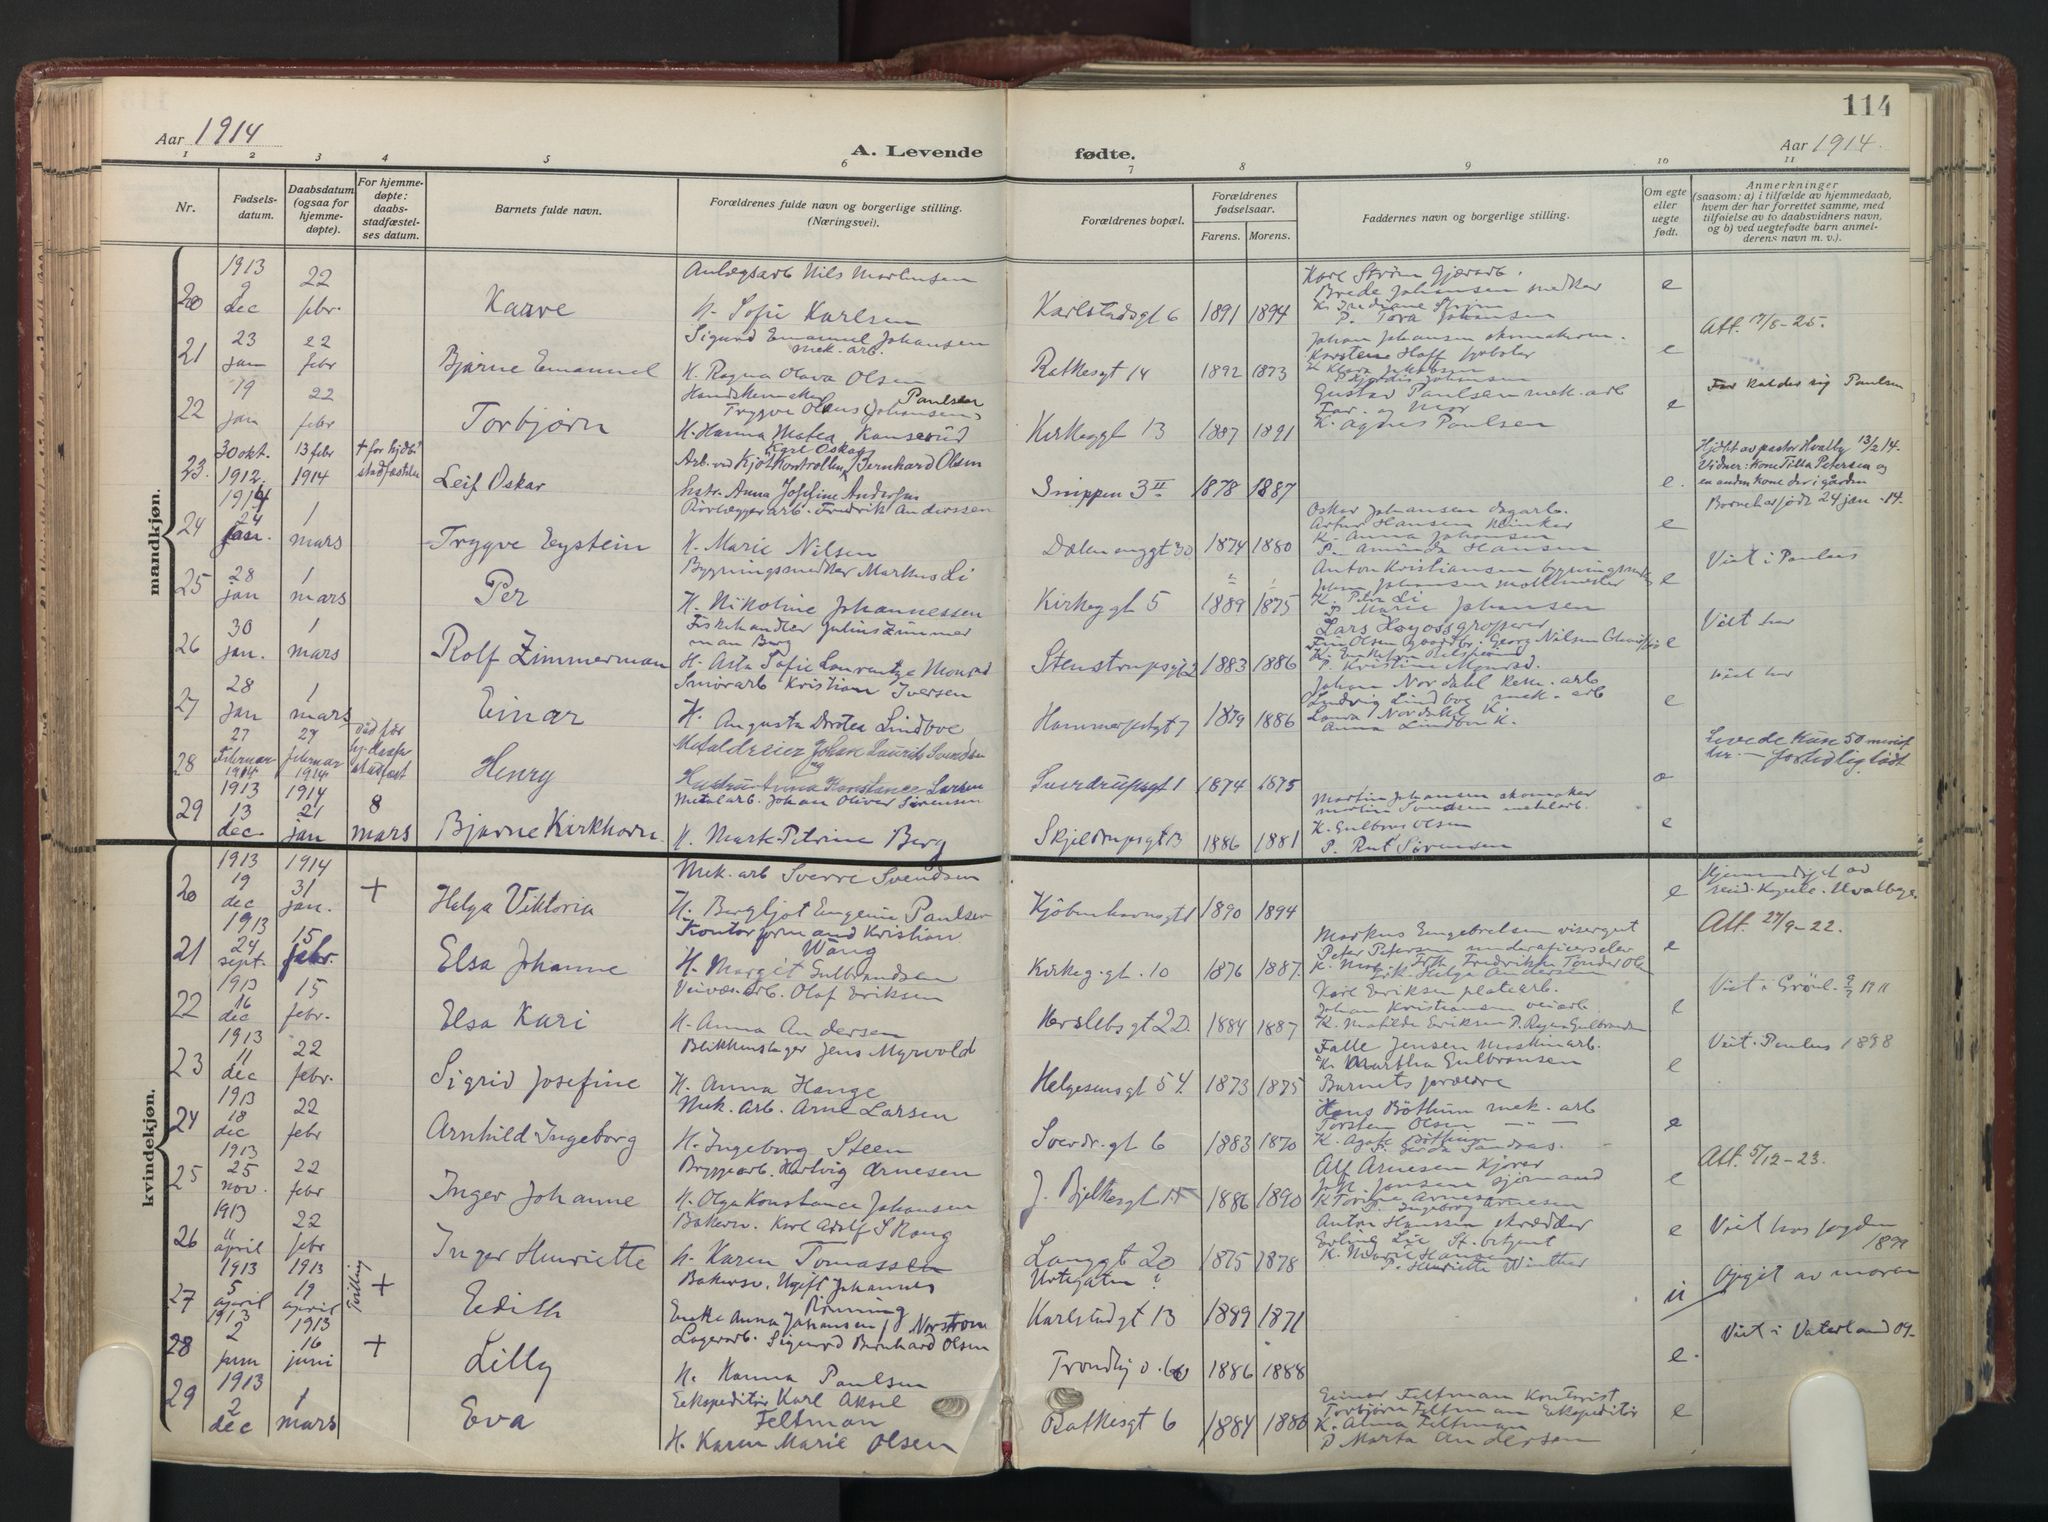 114
Aar 1914
A. Levende fødte.
Aar 1914.
1 2 3 4 5 6 7 8 9 10 11
Nr.
Fødsels-datum.
Daabsdatum (ogsaa for hjemme-døpte).
For hjemme-døpte: daabs-stadfæstel-ses datum.
Barnets fulde navn.
Forældrenes fulde navn og borgerlige stilling. (Næringsvei).
Forældrenes bopæl.
Forældrenes fødselsaar.
Farens. Morens.
Faddernes navn og borgerlige stilling.
Om egte eller uegte født.
Anmerkninger
(saasom: a) i tilfælde av hjemmedaab, hvem der har forrettet samme, med tilføielse av to daabsvidners navn, og b) ved uegtefødte barn anmelderens navn m. v.).
mandkjøn.
20 1913 2 dec 22 febr. Kaare
Anlægsarb Nils Martinsen
H. Sofie Karlsen
Karlstadsgt 6 1891 1894
Brede Johansen snedker
P. Tora Johansen
e
21 23 jan 22 febr Bjarne Emanuel
Sigurd Emanuel Johansen mek. arb.
H. Ragna Olava Olsen
Ratkesgt 14 1892 1873
e
Att. 17/8-25.
22 19 jan 22 febr Torbjørn
Trygve Olaus Johansen Paulsen
H. Hanna Matea Kanserud
Kirkeggt 13 1887 1891
Gustav Paulsen mek. arb
Far og Mor
K. Agnes Paulsen
e
Far kalder sig Paulsen
23. 30 okt. 1912. 13 febr 1914 + før hjdb. stadfæstelse Leif Oskar
Karl Oskar
Arb. ved Kjøtkontrollen Bernhard Olsen
Hustr. Anna Josefine Andersen
Snippen 3 II 1878 1887
e.
Hjdbt av pastor Hvalby 13/2 14.
Vidner: kone Tilla Petersen og
en anden kone der i gården
24 1914 24 jan. 1 mars Trygve Eystein
Rørlæggerarb. Fredrik Anderssen
H. Marie Nilsen
Dælenenggt 30 1874 1880
Oskar Johansen dagarb.
K. Anna Johansen
P. Amanda Hansen
e
Barnet er født 24 jan -14.
25 28 jan 1 mars Per
Bygningssnedker Markus Li
H. Nikoline Johannessen
Kirkeggt 5 1889 1875
Anton Kristiansen bygningssnedker
P. Marie Johansen
e
Viet i Paulus
26 30 jan. 1 mars Rolf Zimmerman
Fiskehandler Julius Zimmer
man Berg
H. Asta Sofie Laurentze Monrad
Stenstrupsgt 2 1883 1886
Lars Høyos grosserer
P. Kristine Monrad.
e
Viet her
27 28 jan 1 mars Einar
Smørarb Kristian Iversen
H. Augusta Dortea Lindboe
Hammerstadgt 7 1879 1886
Johan Nordahl rem. arb
Ludvig Lindboe mek. arb
Laura Nordahl K.
Anna Lindboe K.
e
Viet her
28 27 Februar 1914 27 februar 1914 død før hj.daabs stadfæst Henry
Metaldreier Johan Laurits Svendsen
og
Hustru Anna Konstance Larsen
Sverdrupsgt 1 1874 1875
e
Levede kun 50 minutter — forstidlig født
29 1913 13 dec. 1914 21 jan 8 mars Bjarne Kirkhorn
Metalarb. Johan Oliver Sørensen
H. Marte Petrine Berg
Skjeldrupsgt 13 1886 1881
Martin Johansen skomaker
Martin Svendsen metalarb.
P. Rut Sørensen
e
kvindekjøn.
20 1913 19 dec 1914 31 jan. + Helga Viktoria
Mek. arb Sverre Svendsen
H. Bergljot Eugenie Paulsen
Kjøbenhavnsgt 1 1890 1894
e
21 1913 24 sept. 15 febr. Elsa Johanne
Kontorformand Kristian Wang
H. Margit Gulbrandsen
Kirkeg.gt. 10 1876 1887.
Markus Engebretsen visergut
Peter Petersen underofficerselev
e
Att. 27/9-22.
22 1913 16 dec 15 febr. Elsa Kari
Veivæs.arb. Olaf Eriksen
H. Anna Andersen
Herslebsgt 2 D. 1884 1887
Karl Eriksen platearb.
Johan Kristiansen veiarb.
K. Matilde Eriksen P. Ragna Gulbrandsen
e
Viet i Grønl. 1911
23 1913 11 dec 22 febr. Sigrid Josefine
Blikkenslager Jens Myrvold
H. Anna Hange
Helgesensgt 54. 1873 1875
Falle Jensen Maskinarb.
K. Martha Gulbransen
Barnets forældre
e
Viet. Paulus 1898
24 1913 18 dec 22 febr Arnhild Ingeborg
Mek. Arb. Arne Larsen
H. Ingeborg Steen
Sverdr.gt 6 1883 1870
Hans Bøthun mek. arb
Torsten Olsen — —
e
25 1913 25 nov. 22 febr Inger Johanne
Bryggearb. Hartvig Arnesen
H. Olga Konstance Johansen
J. Bjelkesgt 15 1886 1890
Alf Arnesen kjører
Joh. Jensen sjømand
P. Ingeborg Arnesen
e
Att. 5/12-23.
26 1913 11 april 22 febr Inger Henriette
Bakersv. Karl Adolf Skaug
H. Karen Tomassen
Langgt 20 1875 1878
Anton Hanssen skrædder
Erling Lie st. betjent
K. Marie Hansen
P. Henriette Winther
e
Viet hos fogden 1899
27 1913 5 april 1913 19 april Tvilling + Edith
Bakersv. Ugift Johannes Rønning
Enke Anna Johansen f Norstrøm
Urtegaten ?
Karlstadgt 13 1889 1871
u
Opgit av moren
28 1913 2 juni 1913 16 juni + Lilly
Lagerarb. Sigurd Bernhard Olsen
H. Hanna Paulsen
Trondhj v. 60 1886 1888
e.
Viet i Vaterland 09.
29 1913 2 dec 1 mars Eva
Ekspeditør Karl Aksel Feltman
H. Karen Marie Olsen
Ratkesgt 6 1884 1886
Einar Feltman Kontorist
Torbjørn Feltman Ekspeditør
K. Anna Feltman
P Marta Andersen
e